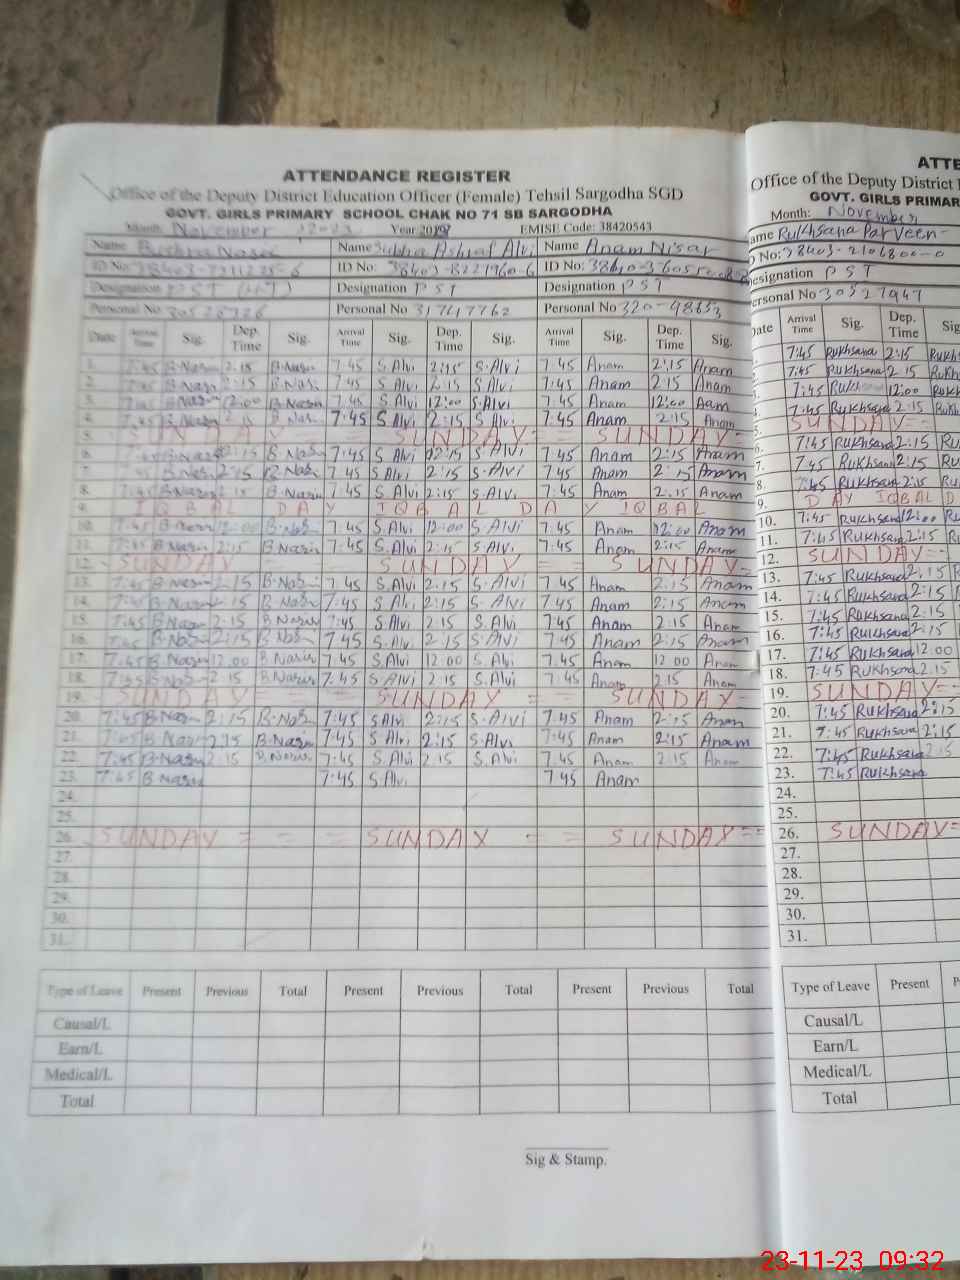 ATTENDANCE REGISTER
Office of the Deputy District Education Officer (Female) Tehsil Sargodha SGD
GOVT. GIRLS PRIMARY SCHOOL CHAK NO 71 SB SARGODHA
Month November Year EMISE Code: 38420543
Name Name Ashraf Alvi Name Anam Nisar
ID No: ID No: ID No:
Designation PST Designation PST Designation PST
Personal No Personal No 31747762 Personal No
Date Arrival Time Sig. Dep. Time Sig. Arrival Time Sig. Dep. Time Sig. Arrival Time Sig. Dep. Time Sig.
1. 7:45 B.Nasir 2:15 B.Nasir 7:45 S.Alvi 2:15 S.Alvi 7:45 Anam 2:15 Anam
2. 7:45 B.Nasir 2:15 B.Nasir 7:45 S Alvi 2:15 S Alvi 7:45 Anam 2:15 Anam
3. 7:45 B.Nasir 12:00 B.Nasir 7:45 S Alvi 12:00 S.Alvi 7:45 Anam 12:00 Aam
4. 7:45 B.Nasir 2:15 B Nasir 7:45 S Alvi 2:15 S.Alvi 7:45 Anam 2:15 Anam
5. SUNDAY = = SUNDAY = = SUNDAY =
6. 7:45 2:15 B.Nasir 7:45 S Alvi 2:15 S Alvi 7:45 Anam 2:15 Anam
7. B.Nasir 2:15 B.Nasir 7:45 S Alvi 2:15 S.Alvi 7:45 Anam 2:15 Anam
8. 7:45 B.Nasir 2:15 B.Nasir 7:45 S.Alvi 2:15 S.Alvi 7:45 Anam 2:15 Anam
9. IQBAL DAY IQBAL DAY IQBAL
10. 7:45 B.Nasir 12:00 B.Nasir 7:45 S.Alvi 12:00 S.Alvi 7:45 Anam 12:00 Anam
11. 7:45 B.Nasir 2:15 B.Nasir 7:45 S.Alvi 2:15 S.Alvi 7:45 Anam 2:15 Anam
12. SUNDAY = = SUNDAY = = SUNDAY =
13. 7:45 B.Nasir 2:15 B.Nasir 7:45 S.Alvi 2:15 S.Alvi 7:45 Anam 2:15 Anam
14. 7:45 B.Nasir 2:15 B.Nasir 7:45 S.Alvi 2:15 S.Alvi 7:45 Anam 2:15 Anam
15. 7:45 B.Nasir 2:15 B.Nasir 7:45 S.Alvi 2:15 S.Alvi 7:45 Anam 2:15 Anam
16. 7:45 B.Nasir 2:15 B.Nasir 7:45 S.Alvi 2:15 S.Alvi 7:45 Anam 2:15 Anam
17. 7:45 B.Nasir 12:00 B.Nasir 7:45 S.Alvi 12:00 S.Alvi 7:45 Anam 12:00 Anam
18. 7:45 B.Nasir 2:15 B.Nasir 7:45 S Alvi 2:15 S.Alvi 7:45 Anam 2:15 Anam
19. SUNDAY = = SUNDAY = = SUNDAY
20. 7:45 B.Nasir 2:15 B.Nasir 7:45 S Alvi 2:15 S.Alvi 7:45 Anam 2:15 Anam
21. 7:45 B.Nasir 2:15 B.Nasir 7:45 S.Alvi 2:15 S.Alvi 7:45 Anam 2:15 Anam
22. 7:45 B.Nasir 2:15 B.Nasir 7:45 S.Alvi 2:15 S.Alvi 7:45 Anam 2:15 Anam
23. 7:45 B.Nasir 7:45 S.Alvi 7:45 Anam
24.
25.
26. SUNDAY = = = SUNDAY = = SUNDAY = =
27.
28.
29.
30.
31.
Type of Leave Present Previous Total Present Previous Total Present Previous Total
Causal/L
Earn/L
Medical/L
Total
Sig & Stamp.
ATTE
Office of the Deputy District
GOVT. GIRLS PRIMAR
Month: November
ame Rukhsana Parveen
D No: 38403-2106800-0
Designation PST
Personal No 30527947
Date Arrival Time Sig. Dep. Time Sig
7:45 Rukhsana 2:15 Rukhs
7:45 Rukhsana 2:15 Rukhs
7:45 Rukhsana 12:00 Rukhs
4. 7:45 Rukhsana 2:15 Rukhs
5. SUNDAY =
6. 7:45 Rukhsana 2:15 Ru
7. 7:45 Rukhsana 2:15 Ru
8. 7:45 Rukhsana 2:15 Ru
9. DAY IQBAL D
10. 7:45 Rukhsana 12:00 Ru
11. 7:45 Rukhsana 2:15 Ru
12. SUNDAY =
13. 7:45 Rukhsana 2:15 R
14. 7:45 Rukhsana 2:15
15. 7:45 Rukhsana 2:15
16. 7:45 Rukhsana 2:15
17. 7:45 Rukhsana 12:00
18. 7:45 Rukhsana 2:15
19. SUNDAY =
20. 7:45 Rukhsana 2:15
21. 7:45 Rukhsana 2:15
22. 7:45 Rukhsana 2:15
23. 7:45 Rukhsana
24.
25.
26. SUNDAY =
27.
28.
29.
30.
31.
Type of Leave Present P
Causal/L
Earn/L
Medical/L
Total
23-11-23 09:32